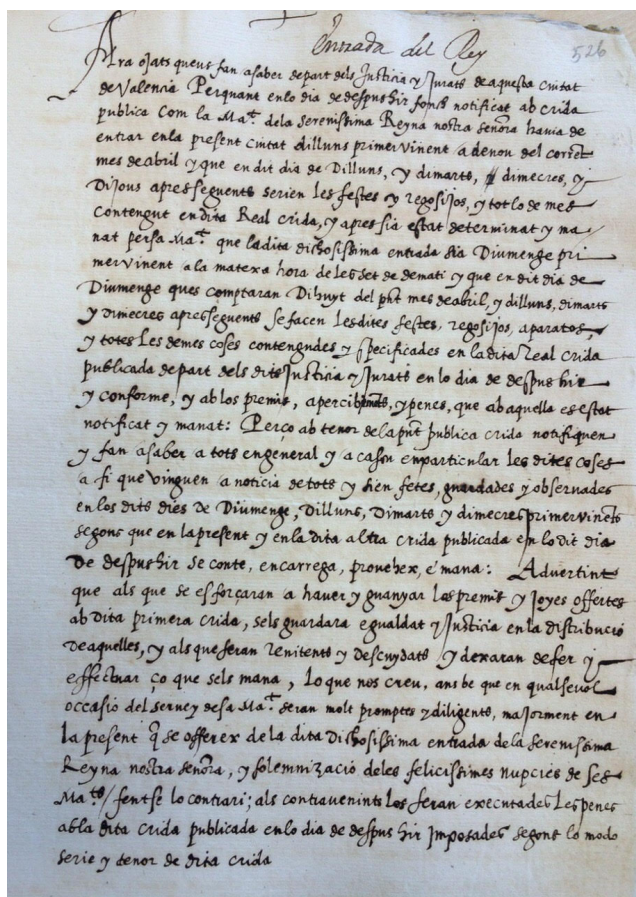 Entrada del Rey
526
Ara ojats queus fan a saber de part dels Justicia y Jurats de aquesta ciutat
de Valencia Perquant en lo dia de despushir fonch notificat ab crida
publica Com la Mat. dela Serenissima Reyna nostra señora havia de
entrar en la present ciutat dilluns primer vinent a denou del corret
mes de abril y que en dit dia de Dilluns, y dimarts, dimecres, y
Dijous apres seguents serien les festes y regosijos, y tot lo demes
contengut en dita Real crida, y apres sia estat determinat y ma
nat per sa Mat. que la dita dichosissima entrada sia Diumenge pri
mer vinent a la matexa hora de les set de demati y que en dit dia de
Diumenge ques comptaran Dihuyt del pnt mes de abril, y dilluns, dimarts
y dimecres apres seguents se facen les dites festes, regosijos, aparatos,
y totes les demes coses contengudes y specificades en la dita Real crida
publicada de part dels dits Justicia y Jurats en lo dia de despushir
y conforme, y ab los premis, apercibments, y penes, que ab aquella es estat
notificat y manat: Perço ab tenor de la pnt publica crida notifiquen
y fan a saber a tots en general y a cascu en particular les dites coses
a fi que vinguen a noticia de tots y sien fetes, guardades y observades
en los dits dies de Diumenge, Dilluns, Dimarts y dimecres primer vinents
segons que en la present y en la dita altra crida publicada en lo dit dia
de despushir se conte, encarrega, provehex, e mana: Advertint
que als que se esforçaran a haver y guanyar los premis y Joyes offertes
ab dita primera crida, sels guardara egualdat y Justicia en la distribucio
de aquelles, y als que seran renitents y descuydats y dexaran de fer y
effectuar ço que sels mana, lo que nos creu, ans be que en qualsevol
occasio del servey de sa Mat. seran molt promptes y diligents, majorment en
la present q̃ se offerex de la dita dichosissima entrada de la serenissima
Reyna nostra señora, y solemnizacio de les felicissimes nupcies de ses
Mats. / fentse lo contrari; als contravenints los seran executades les penes
ab la dita crida publicada en lo dia de despushir imposades segons lo modo
serie y tenor de dita crida